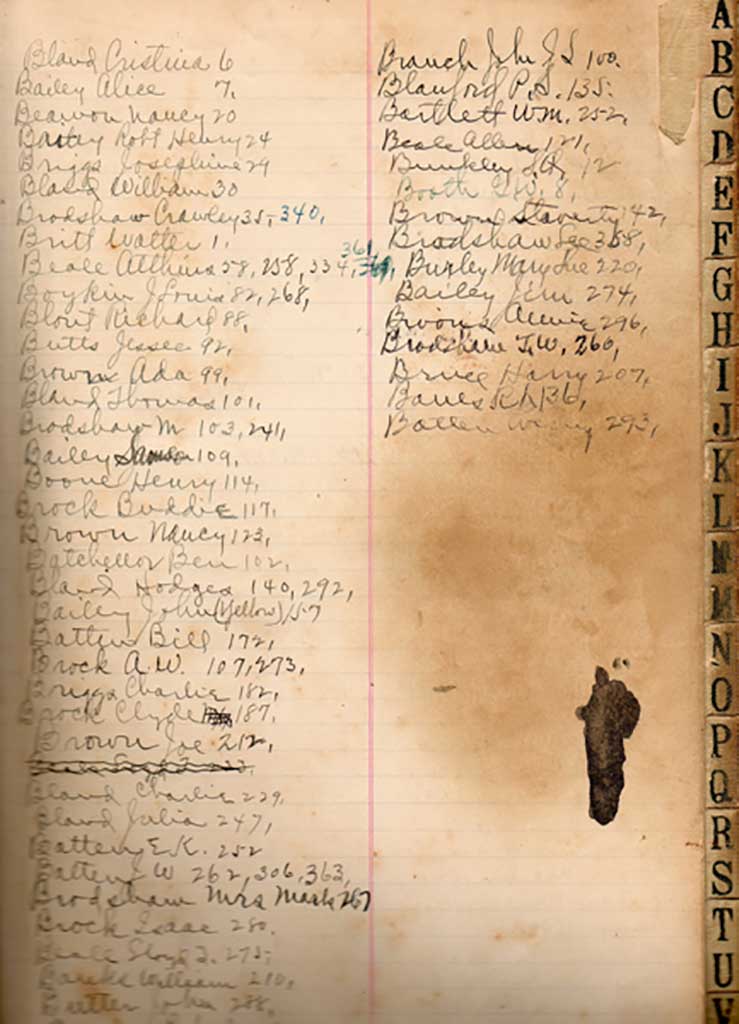 Bland Cristina 6
Bailey Alice 7,
Nancy 20
Robt Henry 24
Briggs Josephine 29
Bland William 30
Bradshaw Crawley 35, 340,
Britt Walter 1,
Beale 58, 258, 334,
361
Boykin J Louis 82, 268,
Blont Richard 88,
Butts Jessee 92,
Brown Ada 99,
Bland Thomas 101,
Bradshaw M 103, 241,
Bailey 109,
Boone Henry 114,
Brock Buddie 117,
Brown Nancy 123,
Batchellor Ben 102,
Bland Hodges 140, 292,
Bailey John (Yellow) 157
Batten Bill 172,
Brock A.W. 107, 273,
Briggs Charlie 182,
Brock Clyde 187,
Brown Joe 212,
Bland Charlie 229,
Bland Julia 247,
Batten E.K. 252
Batten J W 262, 306, 363,
Bradshaw Mrs Mark 267
Brock Isaac 280,
Beale 275,
Banks William 210,
John 288,
Branch John J S 100.
Blanford P.S. 135.
Bartlett Wm. 252,
Beale Allen 121,
Bunkley 12
Booth G.W. 8,
Brown 142,
Bradshaw Lee 358,
Burley Mary Sue 220,
Bailey Jim 274,
Annie 296,
Bradshaw J.W. 260,
Bruce Harry 207,
136,
Batten 293,
A
B
C
D
E
F
G
H
I
J
K
L
M
N
O
P
Q
R
S
T
U
V